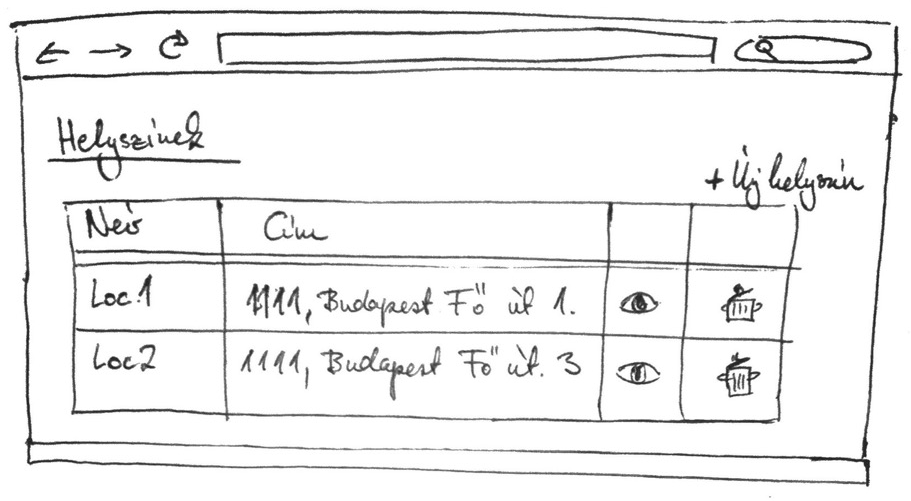 Helyszínek
+ Új helyszín
Név Cím
Loc.1 1111, Budapest Fő út 1.
Loc2 1111, Budapest Fő út. 3